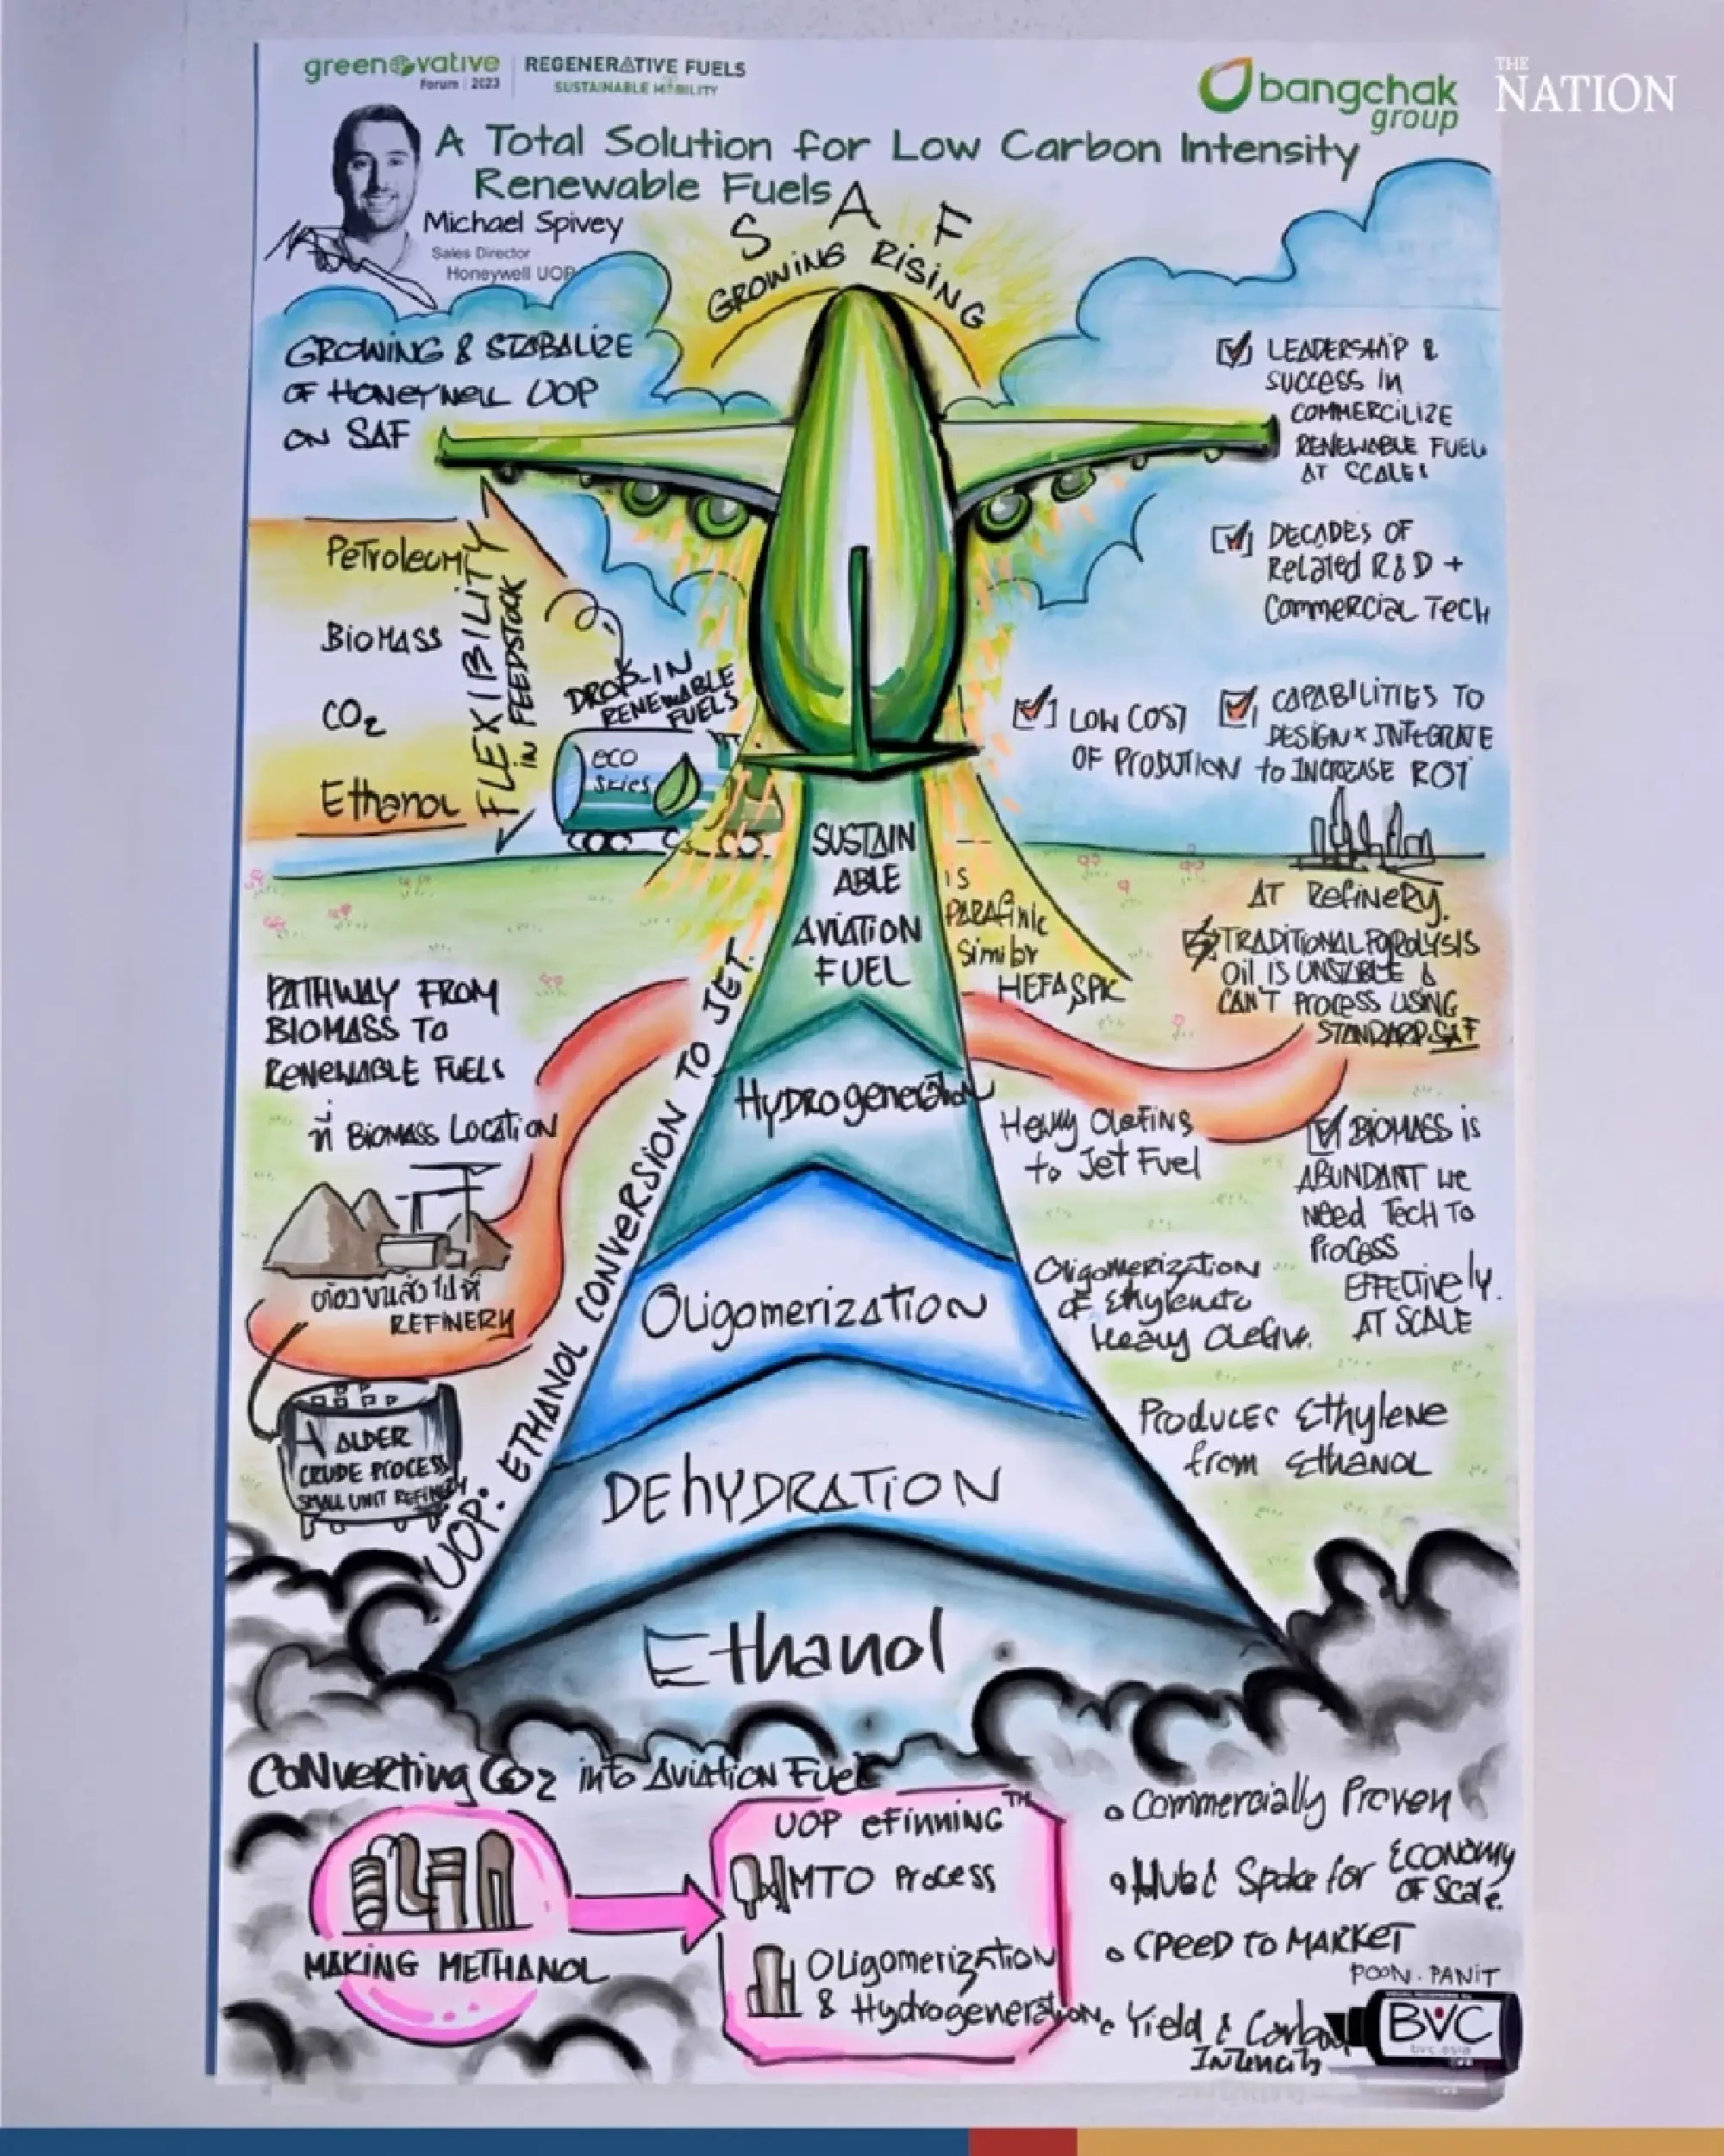 greenovative
Forum | 2023
REGENERATIVE FUELS
SUSTAINABLE MOBILITY
bangchak
group
THE
NATION
A Total Solution for Low Carbon Intensity
Renewable Fuels
Michael Spivey
Sales Director
Honeywell UOP
SAF
GROWING RISING
GROWING & STABALIZE
OF HONEYWELL UOP
ON SAF
PETROLEUM
BIOMASS
CO2
Ethanol
FLEXIBILITY
IN FEEDSTOCK
DROP-IN
RENEWABLE
FUELS
eco
skies
LEADERSHIP &
SUCCESS IN
COMMERCILIZE
RENEWABLE FUEL
AT SCALE
DECADES OF
RELATED R&D +
COMMERCIAL TECH
LOW COST
OF PRODUTION
CAPABILITIES TO
DESIGN & INTEGRATE
to INCREASE ROI
SUSTAIN
ABLE
AVIATION
FUEL
IS
PARAFINIC
Similar
HEFA SPK
AT REFINERY.
TRADITIONAL PYROLYSIS
OIL IS UNSTABLE &
CAN'T PROCESS USING
STANDARD SAF
PATHWAY FROM
BIOMASS TO
RENEWABLE FUELS
ที่ BIOMASS LOCATION
ต้องขนส่งไปที่
REFINERY
CRUDE PROCESS
SMALL UNIT REFINERY
UOP: ETHANOL CONVERSION TO JET.
Hydrogeneration
Heavy Olefins
to Jet Fuel
BIOMASS IS
ABUNDANT WE
NEED TECH TO
PROCESS
EFFECTIVELY.
AT SCALE
Oligomerization
Oligomerization
OF Ethylene to
Heavy Olefin.
DEHYDRATION
PRODUCES Ethylene
from Ethanol
Ethanol
CONVERTING CO2 into AVIATION FUEL
MAKING METHANOL
UOP eFinning™
MTO PROCESS
Oligomerization
& Hydrogeneration
Commercially Proven
Hub & Spoke for ECONOMY
OF SCALE.
SPEED TO MARKET
Yield & Carbon
INTENCITY
POON.PANIT
BVC
bvc.asia